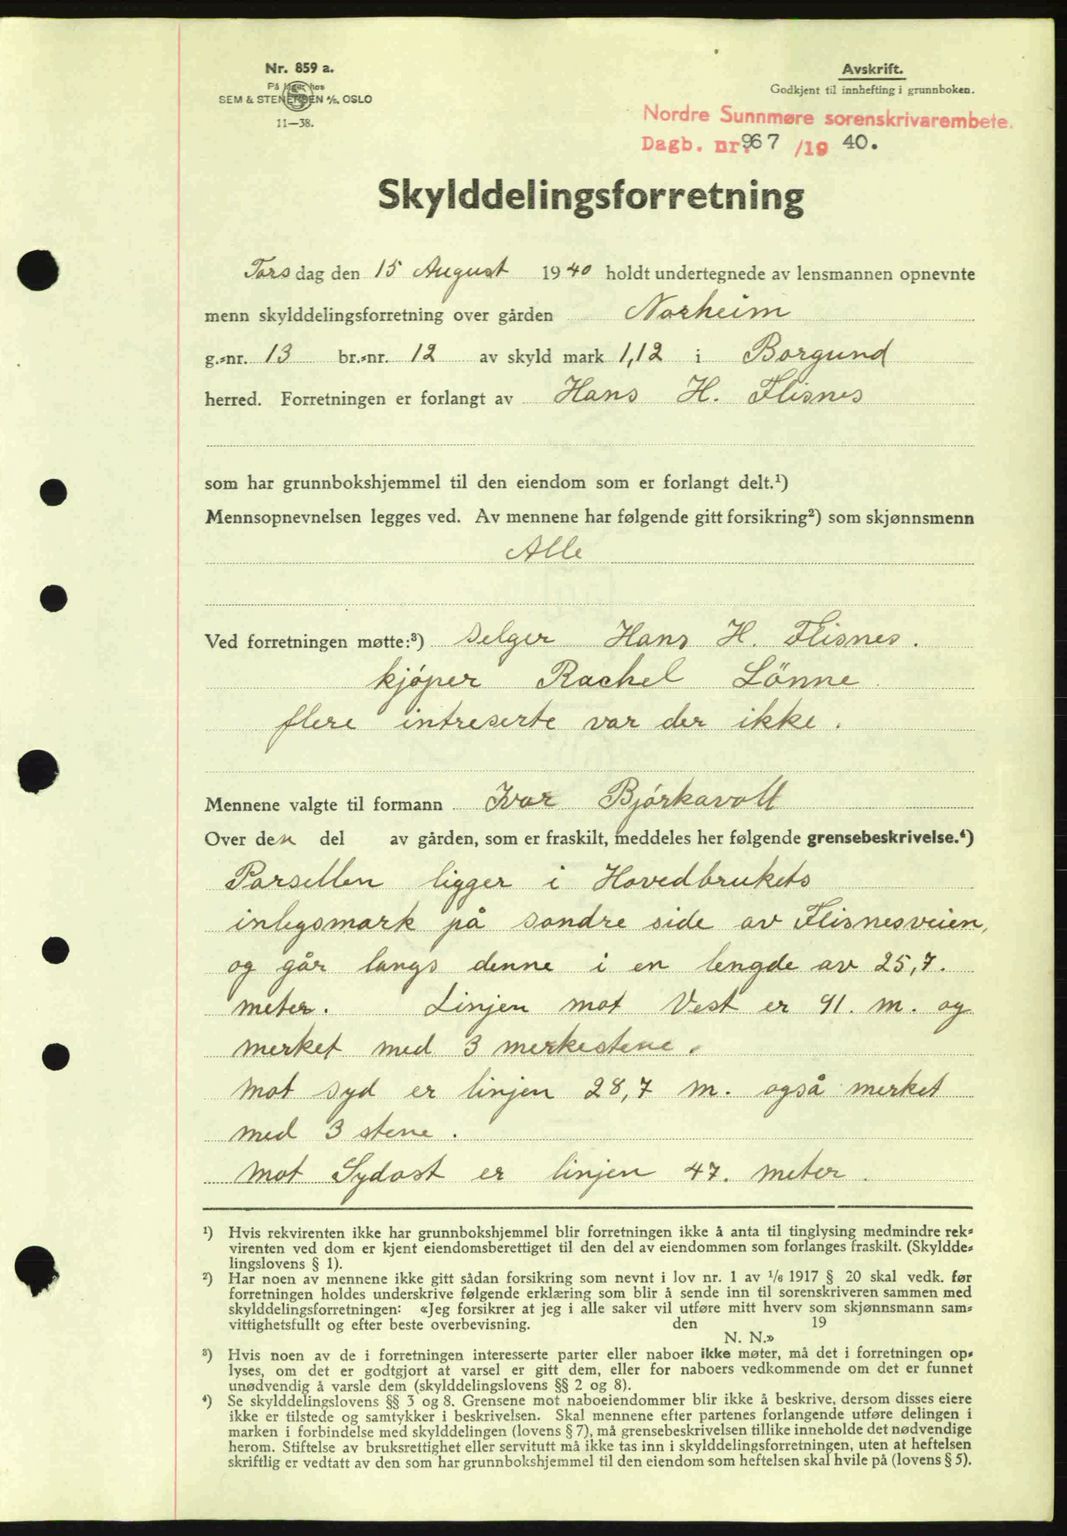 Nr. 859 a.
På lager hos
SEM & STENERSEN A/S, OSLO
11—38.
Avskrift.
Godkjent til innhefting i grunnboken.
Nordre Sunnmøre sorenskrivarembete.
Dagb. nr. 967 /19 40.
Skylddelingsforretning
Torsdag den 15 August 1940 holdt undertegnede av lensmannen opnevnte
menn skylddelingsforretning over gården Norheim
g.=nr. 13 br.=nr. 12 av skyld mark 1,12 i Borgund
herred. Forretningen er forlangt av Hans H. Flisnes
som har grunnbokshjemmel til den eiendom som er forlangt delt.¹)
Mennsopnevnelsen legges ved. Av mennene har følgende gitt forsikring²) som skjønnsmenn
Alle
Ved forretningen møtte:³) Selger Hans H. Flisnes.
kjøper Rachel Lönne
flere intreserte var der ikke.
Mennene valgte til formann Ivar Bjørkavoll
Over den del av gården, som er fraskilt, meddeles her følgende grensebeskrivelse.⁴)
Parsellen ligger i Hovedbrukets
inlegsmark på søndre side av Flisnesveien,
og går langs denne i en lengde av 25,7.
meter. Linjen mot Vest er 91. m. og
merket med 3 merkestene.
mot syd er linjen 28,7 m. også merket
med 3 stene.
mot Sydost er linjen 47. meter.
¹) Hvis rekvirenten ikke har grunnbokshjemmel blir forretningen ikke å anta til tinglysing medmindre rek=
virenten ved dom er kjent eiendomsberettiget til den del av eiendommen som forlanges fraskilt. (Skyldde=
lingslovens § 1).
²) Har noen av mennene ikke gitt sådan forsikring som nevnt i lov nr. 1 av 1/6 1917 § 20 skal vedk. før
forretningen holdes underskrive følgende erklæring som blir å sende inn til sorenskriveren sammen med
skylddelingsforretningen: «Jeg forsikrer at jeg i alle saker vil utføre mitt hverv som skjønnsmann sam=
vittighetsfullt og efter beste overbevisning. den 19
N. N.»
³) Hvis noen av de i forretningen interesserte parter eller naboer ikke møter, må det i forretningen op=
lyses, om det er godtgjort at varsel er gitt dem, eller for naboers vedkommende om det er funnet
unødvendig å varsle dem (skylddelingslovens §§ 2 og 8).
⁴) Se skylddelingslovens §§ 3 og 8. Grensene mot naboeiendommer blir ikke å beskrive, dersom disses eiere
ikke er tilstede og samtykker i beskrivelsen. Skal mennene efter partenes forlangende utføre delingen i
marken i forbindelse med skylddelingen (lovens § 7), må grensebeskrivelsen tillike inneholde det nødvendige
herom. Stiftelse av bruksrettighet eller servitutt må ikke tas inn i skylddelingsforretningen, uten at heftelsen
skriftlig er vedtatt av den som har grunnbokshjemmel til den eiendom som heftelsen skal hvile på (lovens § 5).